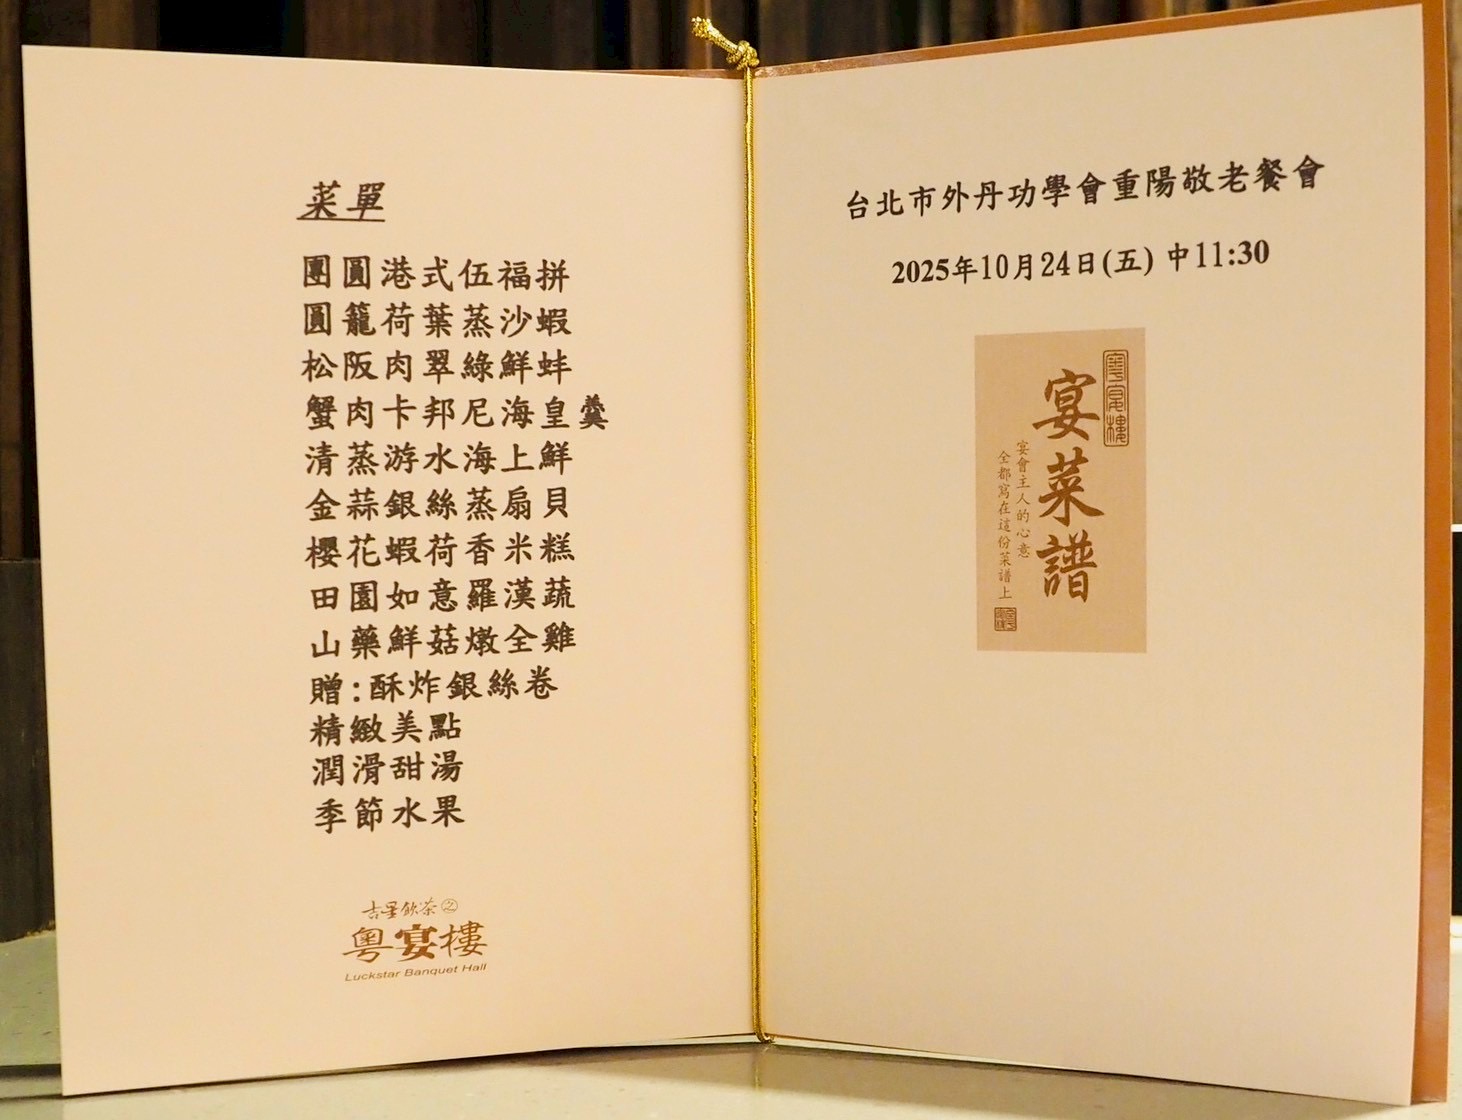 菜單
團圓港式伍福拼
圓籠荷葉蒸沙蝦
松阪肉翠綠鮮蚌
蟹肉卡邦尼海皇羹
清蒸游水海上鮮
金蒜銀絲蒸扇貝
櫻花蝦荷香米糕
田園如意羅漢蔬
山藥鮮菇燉全雞
贈:酥炸銀絲卷
精緻美點
潤滑甜湯
季節水果
吉星飲茶之
粵宴樓
Luckstar Banquet Hall
台北市外丹功學會重陽敬老餐會
2025年10月24日(五) 中11:30
粵宴樓
宴菜譜
宴會主人的心意
全都寫在這份菜譜上